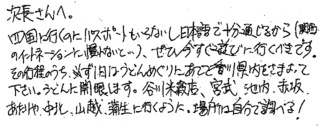 次長さんへ。
四国に行くのにパスポートもいらないし日本語で十分通じるから(関西
のイントネーションに慣れないと…)、ぜひ今すぐ遊びに行くべきです。
その行程のうち、必ず1日はうどんめぐりにあてて香川県内をまわって
下さい。うどんに開眼します。谷川米穀店、宮武、池内、赤坂、
あたりや、中北、山越、蒲生に行くように。場所は自分で調べる!